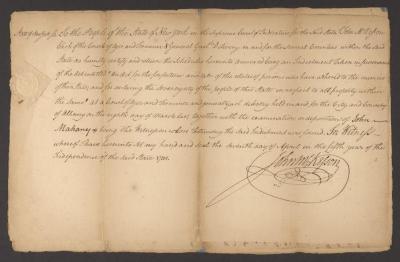 To the People of the State of New York in the Supreme Court of Judicature for the said State John McKesson
Clerk of the Courts of Oyer and Terminer & General Gaol Delivery in and for the several Counties within the said
State do humbly certify and return the Schedules hereunto annexed being an Indictment taken in pursuance
of the Act entitled "An Act for the forfeiture and sale of the estates of persons who have adhered to the enemies
of this State, and for declaring the sovereignty of the people of this State in respect to all property within
the same" at a Court of Oyer and Terminer and general Gaol delivery held in and for the City and County
of Albany on the eighth day of March last, together with the examination or deposition of John
Mahany being the Witness on whose testimony the said Indictment was found. In Witness
whereof I have hereunto set my hand and seal the seventh day of April in the fifth year of the
Independence of the said State 1781.
John McKesson